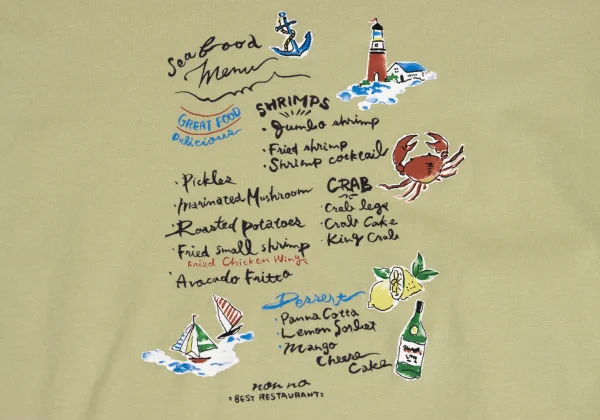 Seafood
Menu
GREAT FOOD
Delicious
SHRIMPS
· Jumbo shrimp
· Fried shrimp
· Shrimp cocktail
· Pickles
· Marinated Mushroom
· Roasted potatoes
· Fried small shrimp
Fried Chicken Wing
· Avocado Fritto
CRAB
· Crab legs
· Crab Cake
· King Crab
Dessert
· Panna Cotta
· Lemon Sorbet
· Mango
Cheese
Cake
non no
"BEST RESTAURANT"